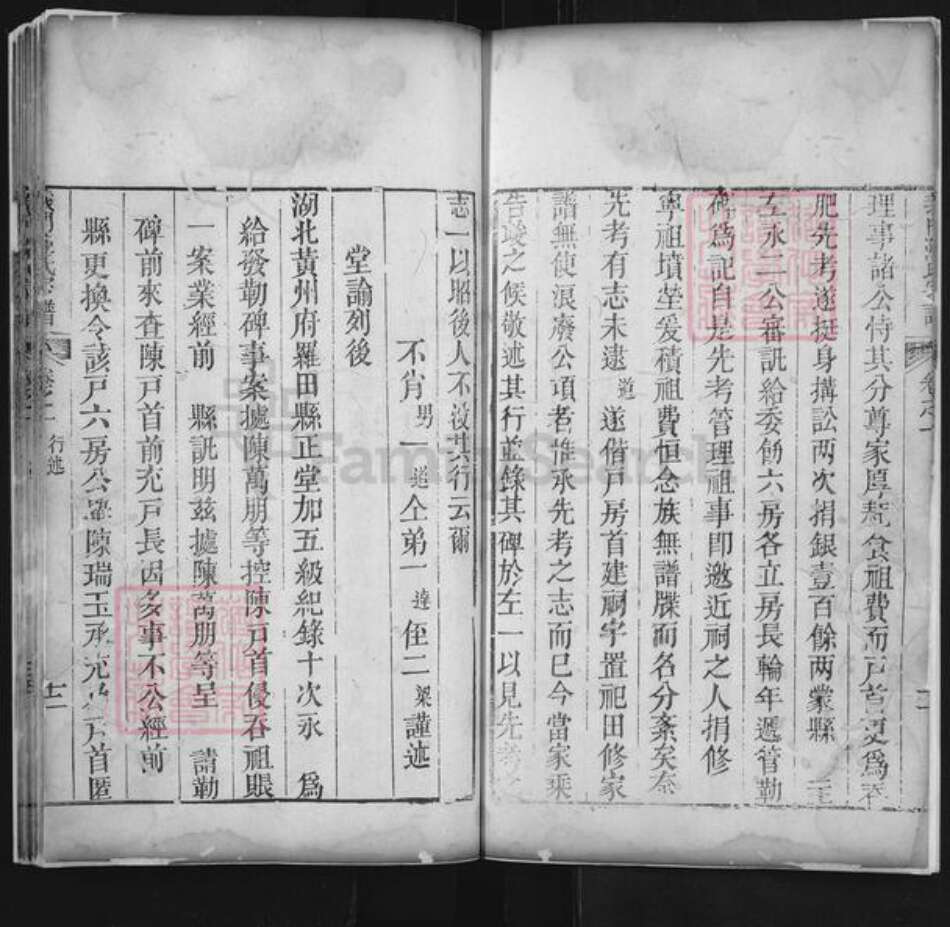 理事諸公恃其分尊家厚鯨食祖費而戸首更爲
肥先考遂挺身搆訟两次捐銀壹百餘两蒙縣
左永二公審訊給委飭六房各立房長輪年遞管勒
碑爲記自是先考管理祖事即邀近祠之人捐修
寧祖墳塋爰積祖費恒念族無譜牒而名分紊矣奈
先考有志未逮道遂偕戸房首建祠宇置祀田修家
譜無使浪廢公項者惟承先考之志而已今當家乘
告竣之候敬述其行並錄其碑於左一以見先考之
志一以昭後人不没其行云爾
不肖男一道仝弟一達侄二梁謹述
堂諭列後
湖北黄州府羅田縣正堂加五級紀錄十次永 爲
給發勒碑事案據陳萬朋等控陳戸首侵吞祖賬
一案業經前 縣訊明兹據陳萬朋等呈 請勒
碑前來查陳戸首前充戸長因多事不公經前
縣更換今該戸六房公舉陳瑞玉承充
戸首匿
氏宗譜
卷之一
行述
十二
FamilySearch